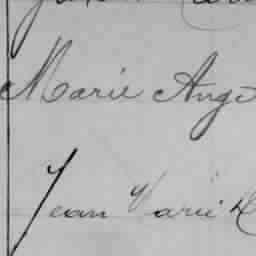 Marie Ange
Jean Marie